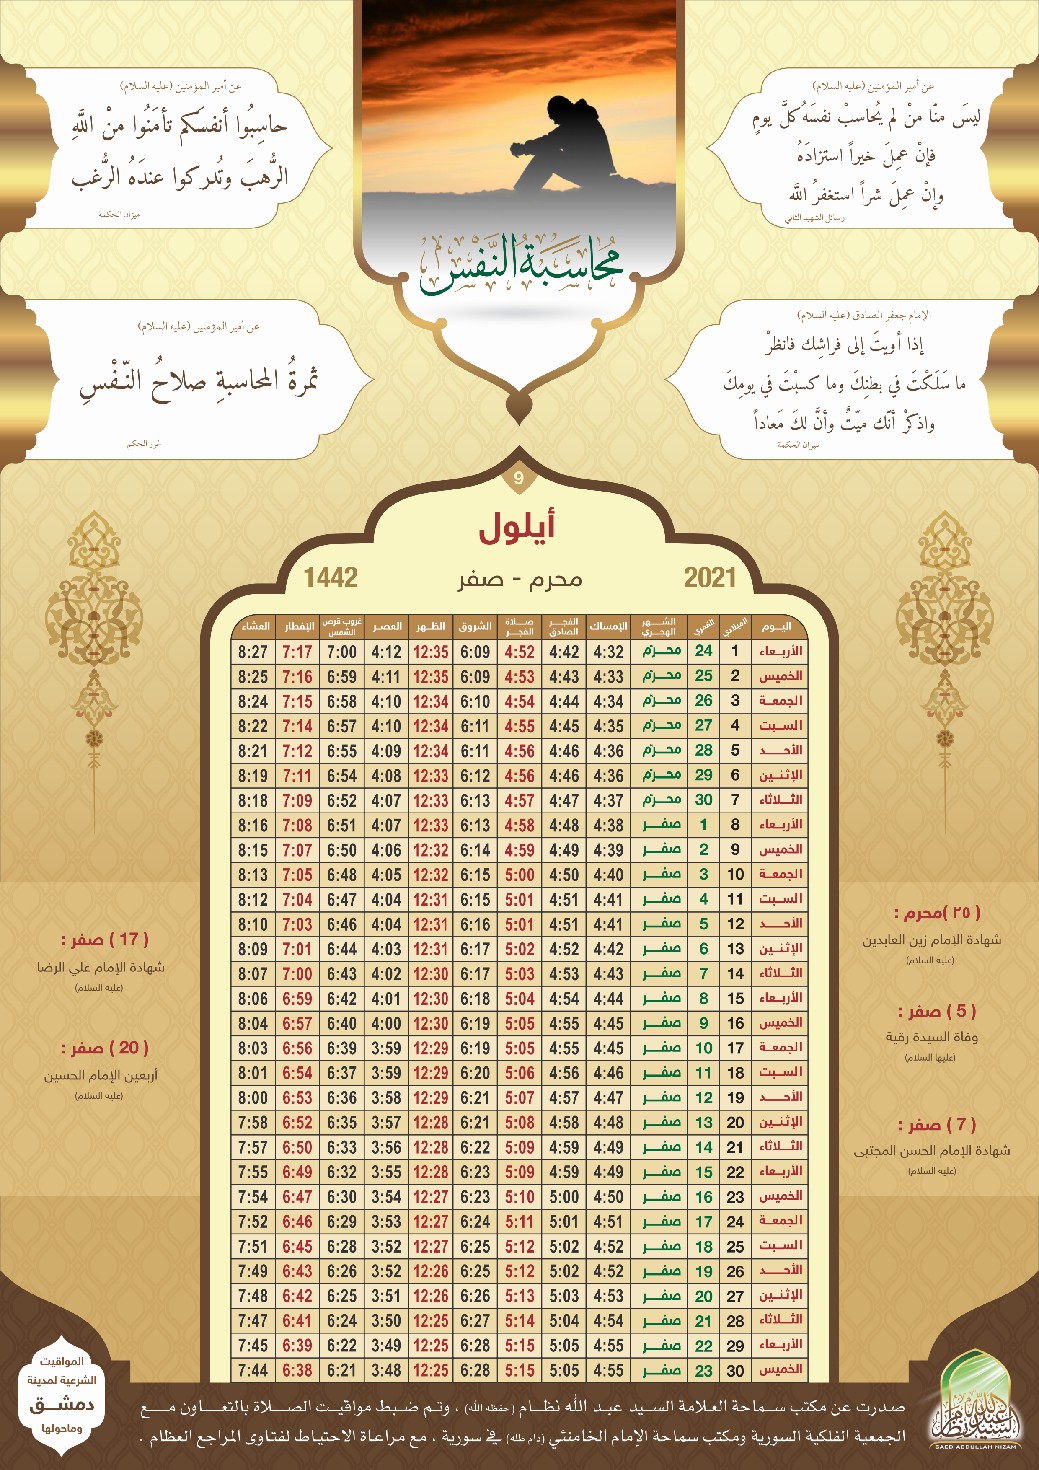 عن أمير المؤمنين (عليه السلام)
ليسَ منّا منْ لم يُحاسبْ نفسَهُ كلَّ يومٍ
فإنْ عمِلَ خيراً استزادَهُ
وإنْ عمِلَ شراً استغفرُ الله
رسائل الشهيد الثاني
عن أمير المؤمنين (عليه السلام)
حاسِبُوا أنفسَكم تأمَنُوا منْ اللَّهِ
الرُّهبَ وتُدركوا عندَهُ الرُّغب
ميزان الحكمة
مُحاسَبَةُ النَّفْس
الإمام جعفر الصادق (عليه السلام)
إذا أويتَ إلى فراشِك فانظرْ
ما سَلَكْتَ في بطنِكَ وما كسبْتَ في يومِكَ
واذكرْ أنّك ميّتٌ وأنَّ لكَ مَعاداً
ميزان الحكمة
عن أمير المؤمنين (عليه السلام)
ثمرةُ المحاسبةِ صلاحُ النّفْسِ
غرر الحكم
9
أيلول
2021 محرم - صفر 1442
اليوم الميلادي القمري الشهر الهجري الإمساك الفجر الصادق صلاة الفجر الشروق الظهر العصر غروب قرص الشمس الإفطار العشاء
الأربعاء 1 24 محرم 4:32 4:42 4:52 6:09 12:35 4:12 7:00 7:17 8:27
الخميس 2 25 محرم 4:33 4:43 4:53 6:09 12:35 4:11 6:59 7:16 8:25
الجمعة 3 26 محرم 4:34 4:44 4:54 6:10 12:34 4:10 6:58 7:15 8:24
السبت 4 27 محرم 4:35 4:45 4:55 6:11 12:34 4:10 6:57 7:14 8:22
الأحد 5 28 محرم 4:36 4:46 4:56 6:11 12:34 4:09 6:55 7:12 8:21
الإثنين 6 29 محرم 4:36 4:46 4:56 6:12 12:33 4:08 6:54 7:11 8:19
الثلاثاء 7 30 محرم 4:37 4:47 4:57 6:13 12:33 4:07 6:52 7:09 8:18
الأربعاء 8 1 صفر 4:38 4:48 4:58 6:13 12:33 4:07 6:51 7:08 8:16
الخميس 9 2 صفر 4:39 4:49 4:59 6:14 12:32 4:06 6:50 7:07 8:15
الجمعة 10 3 صفر 4:40 4:50 5:00 6:15 12:32 4:05 6:48 7:05 8:13
السبت 11 4 صفر 4:41 4:51 5:01 6:15 12:31 4:04 6:47 7:04 8:12
الأحد 12 5 صفر 4:41 4:51 5:01 6:16 12:31 4:04 6:46 7:03 8:10
الإثنين 13 6 صفر 4:42 4:52 5:02 6:17 12:31 4:03 6:44 7:01 8:09
الثلاثاء 14 7 صفر 4:43 4:53 5:03 6:17 12:30 4:02 6:43 7:00 8:07
الأربعاء 15 8 صفر 4:44 4:54 5:04 6:18 12:30 4:01 6:42 6:59 8:06
الخميس 16 9 صفر 4:45 4:55 5:05 6:19 12:30 4:00 6:40 6:57 8:04
الجمعة 17 10 صفر 4:45 4:55 5:05 6:19 12:29 3:59 6:39 6:56 8:03
السبت 18 11 صفر 4:46 4:56 5:06 6:20 12:29 3:59 6:37 6:54 8:01
الأحد 19 12 صفر 4:47 4:57 5:07 6:21 12:29 3:58 6:36 6:53 8:00
الإثنين 20 13 صفر 4:48 4:58 5:08 6:21 12:28 3:57 6:35 6:52 7:58
الثلاثاء 21 14 صفر 4:49 4:59 5:09 6:22 12:28 3:56 6:33 6:50 7:57
الأربعاء 22 15 صفر 4:49 4:59 5:09 6:23 12:28 3:55 6:32 6:49 7:55
الخميس 23 16 صفر 4:50 5:00 5:10 6:23 12:27 3:54 6:30 6:47 7:54
الجمعة 24 17 صفر 4:51 5:01 5:11 6:24 12:27 3:53 6:29 6:46 7:52
السبت 25 18 صفر 4:52 5:02 5:12 6:25 12:27 3:52 6:28 6:45 7:51
الأحد 26 19 صفر 4:52 5:02 5:12 6:25 12:26 3:52 6:26 6:43 7:49
الإثنين 27 20 صفر 4:53 5:03 5:13 6:26 12:26 3:51 6:25 6:42 7:48
الثلاثاء 28 21 صفر 4:54 5:04 5:14 6:27 12:25 3:50 6:24 6:41 7:47
الأربعاء 29 22 صفر 4:55 5:05 5:15 6:28 12:25 3:49 6:22 6:39 7:45
الخميس 30 23 صفر 4:55 5:05 5:15 6:28 12:25 3:48 6:21 6:38 7:44
(٢٥) محرم :
شهادة الإمام زين العابدين
(عليه السلام)
( 5 ) صفر :
وفاة السيدة رقية
(عليها السلام)
( 7 ) صفر :
شهادة الإمام الحسن المجتبى
(عليه السلام)
( 17 ) صفر :
شهادة الإمام علي الرضا
(عليه السلام)
( 20 ) صفر :
أربعين الإمام الحسين
(عليه السلام)
صدرت عن مكتب سماحة العلامة السيد عبد الله نظام (حفظه الله) ، وتم ضبط مواقيت الصلاة بالتعاون مع
الجمعية الفلكية السورية ومكتب سماحة الإمام الخامنئي (دام ظله) في سورية ، مع مراعاة الاحتياط لفتاوى المراجع العظام .
المواقيت
الشرعية لمدينة
دمشق
وماحولها
السيد عبد الله نظام
SAED ABDULLAH NIZAM